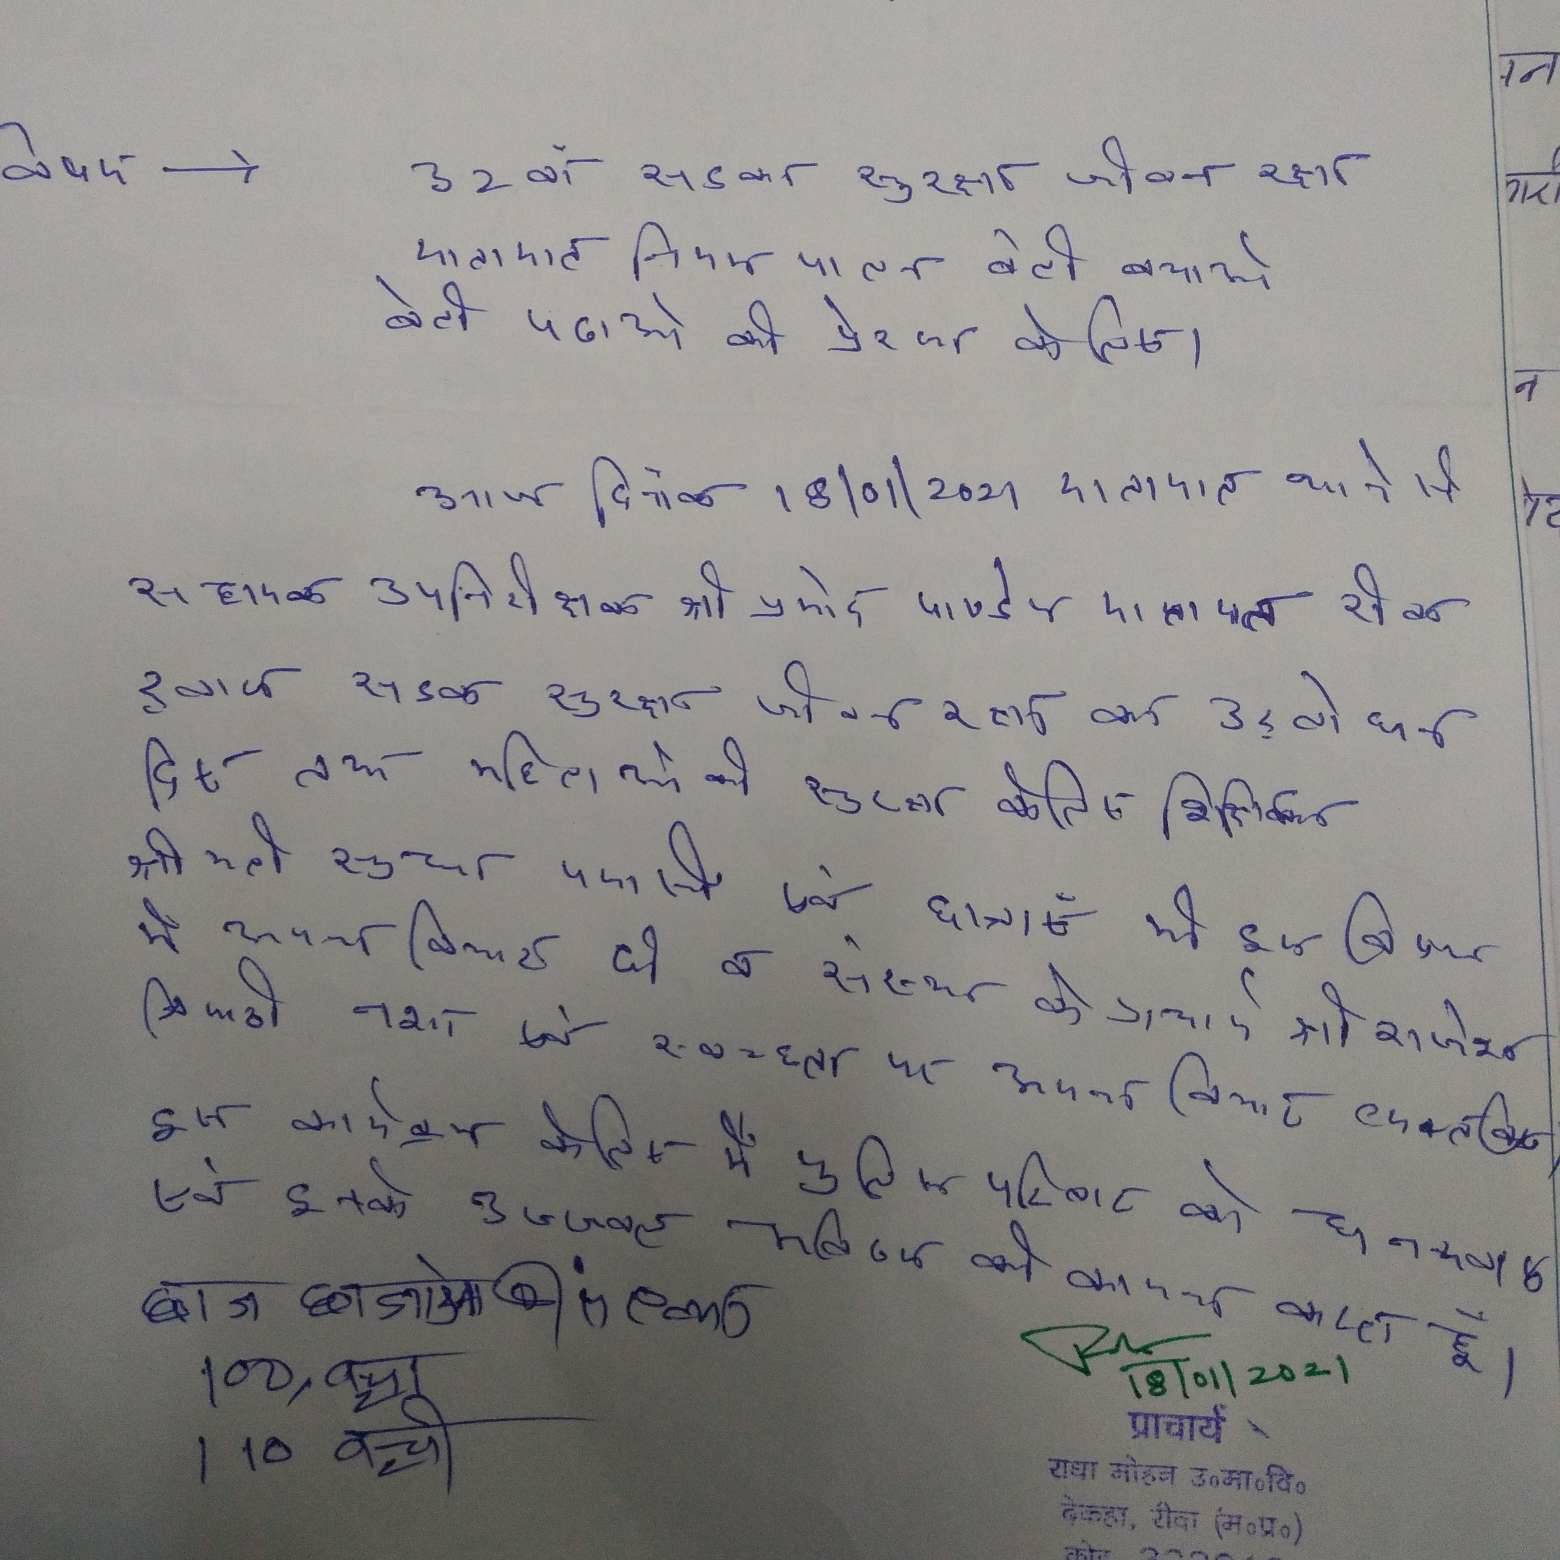 विषय → 32 वाँ सडक सुरक्षा जीवन रक्षा
यातायात नियम पालन बेटी बचाओ
बेटी पढाओ की प्रेरणा के लिए।
आज दिनांक 18/01/2021 यातायात थाने से
सहायक उपनिरीक्षक श्री प्रमोद पाण्डेय यातायात रीवा
द्वारा सडक सुरक्षा जीवन रक्षा का उद्बोधन
दिए तथा महिलाओ की सुरक्षा के लिए शिक्षिका
श्रीमती सुधा एवं छात्राएँ भी इस विषय
में अपना विचार दी व संस्था के प्राचार्य श्री राजेश
त्रिपाठी नशा एवं स्वच्छता पर अपना विचार व्यक्त किए
इस कार्यक्रम के लिए मैं पुलिस परिवार को धन्यवाद
एवं इनके उज्जवल भविष्य की कामना करता हूँ।
छात्र छात्राओ की संख्या
100, बच्चा
110 बच्ची
18/01/2021
प्राचार्य
राधा मोहन उ०मा०वि०
देकहा, रीवा (म०प्र०)
कोड